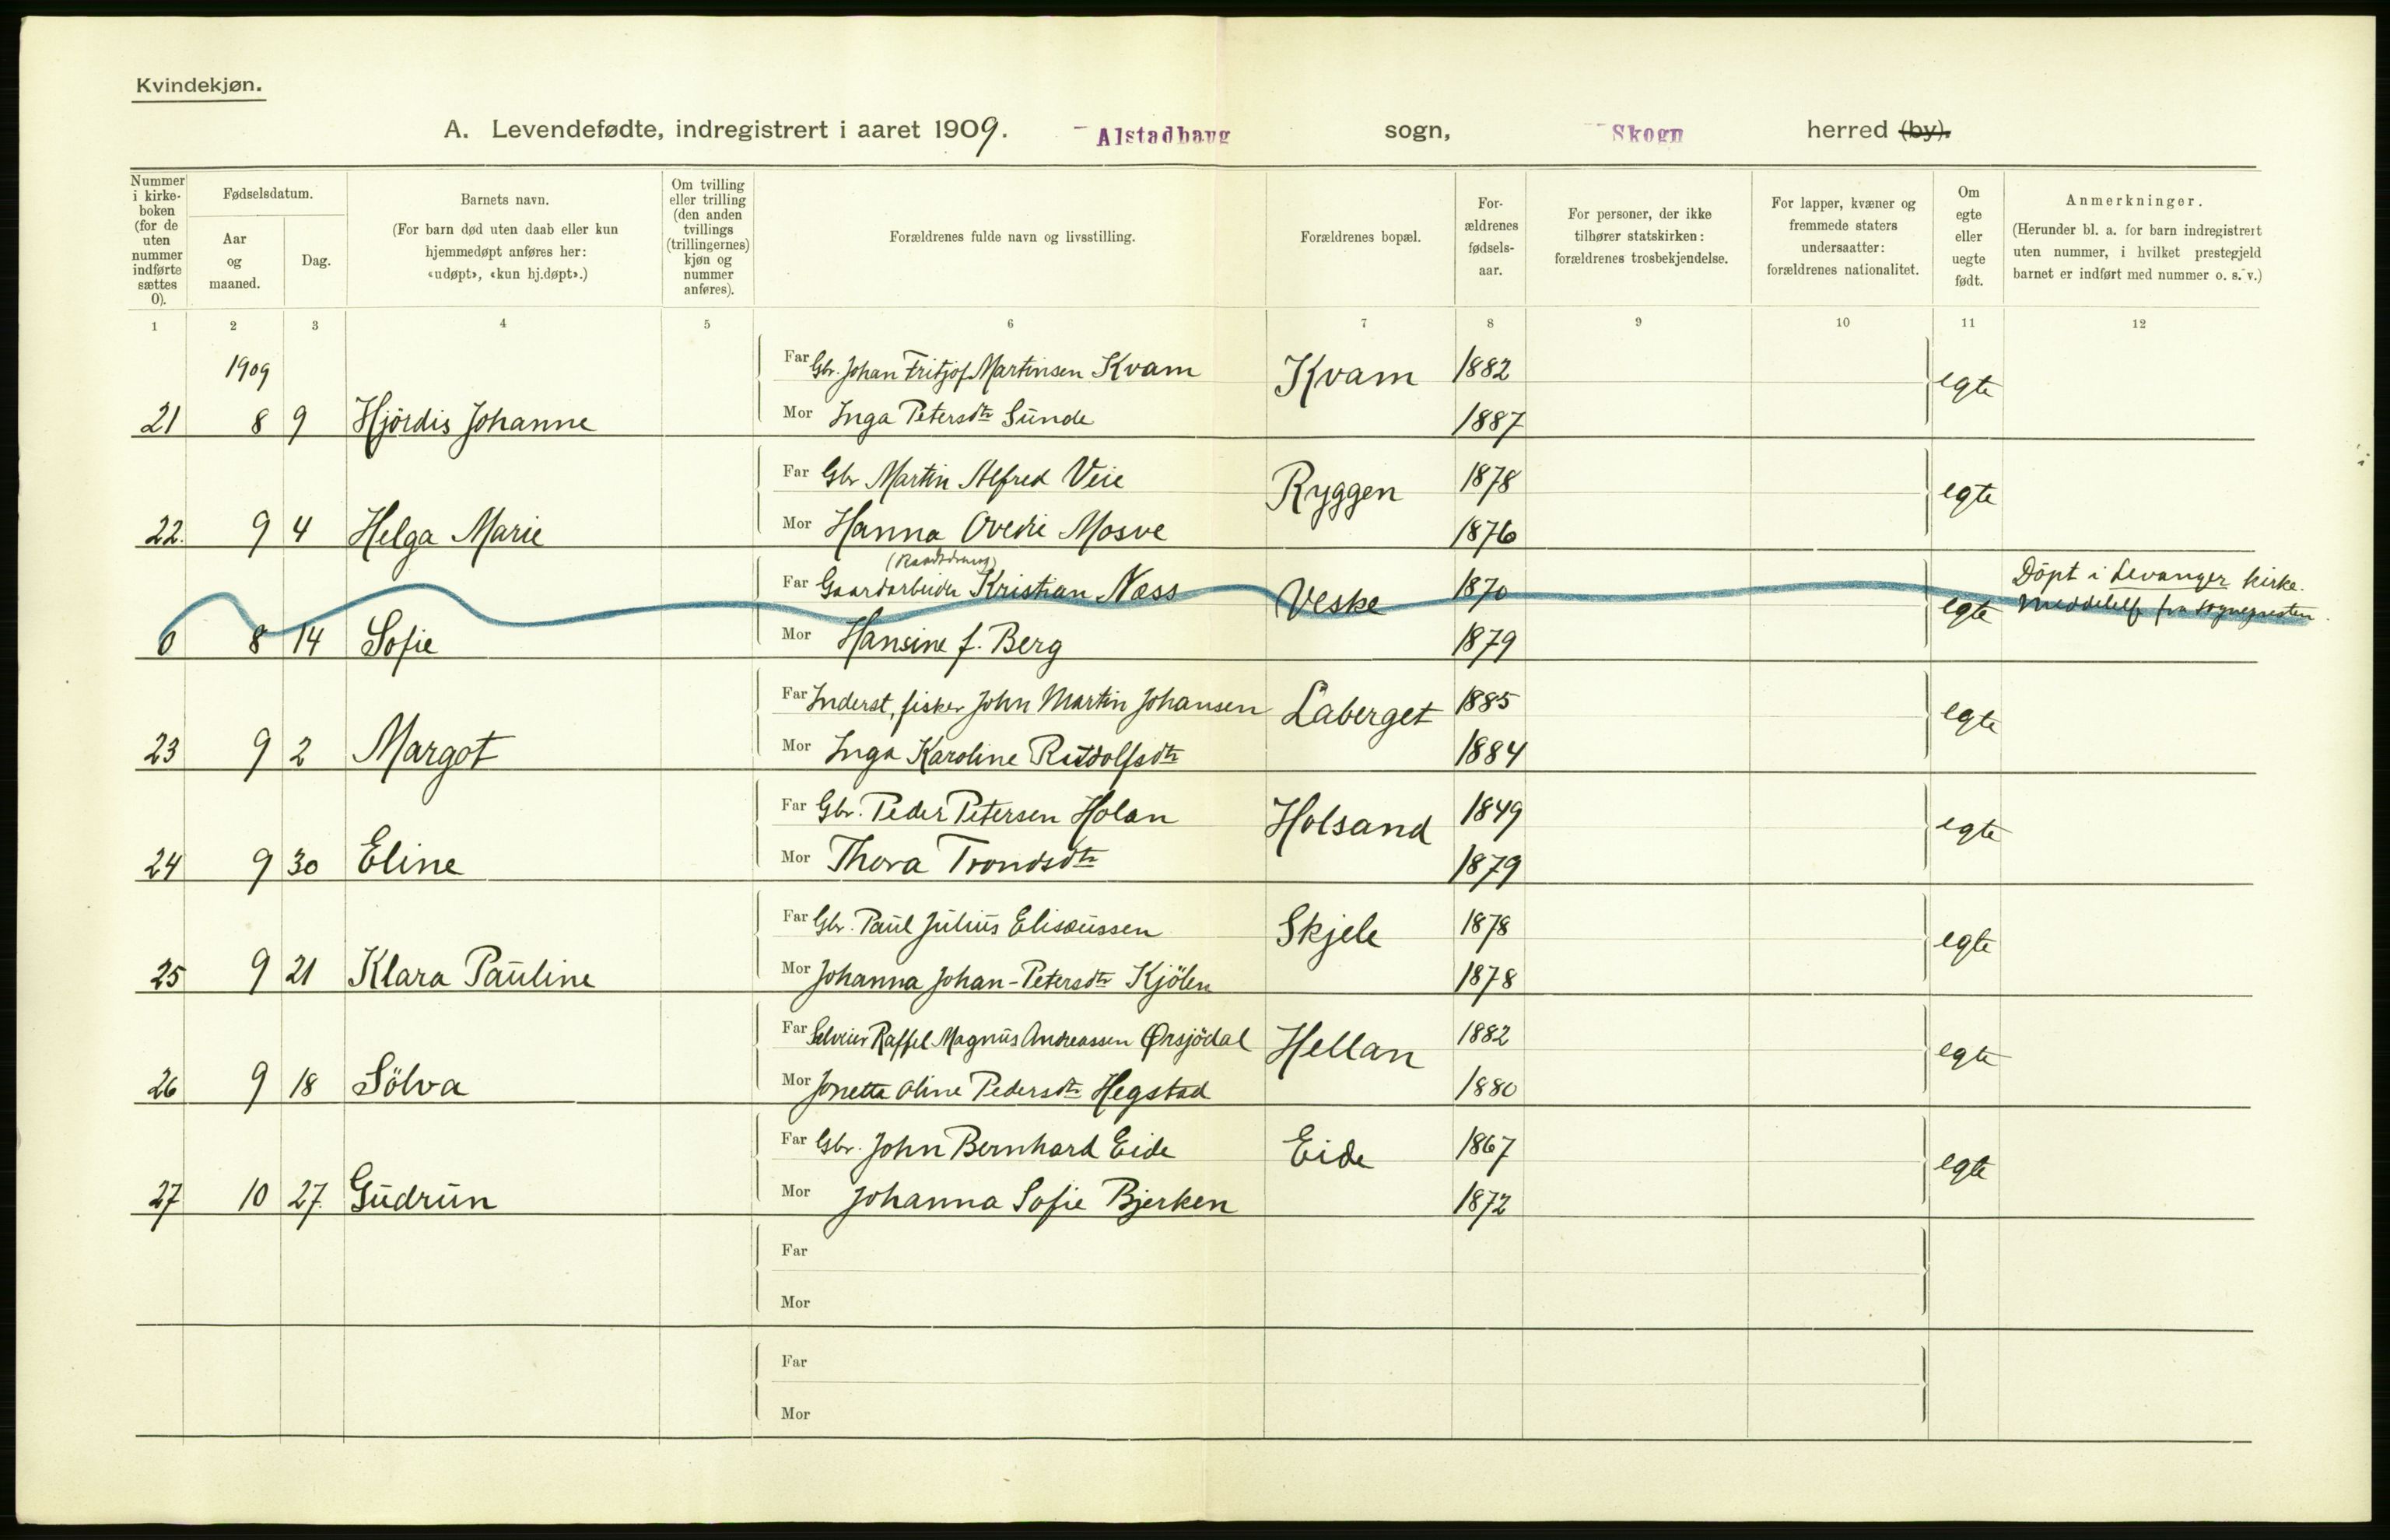 Kvindekjøn.
A. Levendefødte, indregistrert i aaret 1909. Alstadhaug sogn, Skogn herred (by).
Nummer i kirkeboken (for de uten nummer indførte sættes 0).
Fødselsdatum.
Aar og maaned.
Dag.
Barnets navn.
(For barn død uten daab eller kun hjemmedøpt anføres her: «udøpt», «kun hj.døpt».)
Om tvilling eller trilling (den anden tvillings (trillingernes) kjøn og nummer anføres).
Forældrenes fulde navn og livsstilling.
Forældrenes bopæl.
Forældrenes fødselsaar.
For personer, der ikke tilhører statskirken: forældrenes trosbekjendelse.
For lapper, kvæner og fremmede staters undersaatter: forældrenes nationalitet.
Om egte eller uegte født.
Anmerkninger.
(Herunder bl. a. for barn indregistrert uten nummer, i hvilket prestegjeld barnet er indført med nummer o. s. v.)
1 2 3 4 5 6 7 8 9 10 11 12
1909
Far Gbr. Johan Fritjof Martinsen Kvam Kvam 1882 egte
21 8 9 Hjördis Johanne Mor Inga Petersdtr Sunde 1887
Far Gbr Martin Alfred Veie Ryggen 1878 egte
22. 9 4 Helga Marie Mor Hanna Ovedie Mosve 1876
Far Gaardarbeider Kristian Næss Veske 1870 egte Döpt i Levanger kirke.
Meddelelse fra sognepresten.
0 8 14 Sofie Mor Hansine f. Berg 1879
Far Inderst, fisker John Martin Johansen Laberget 1885 egte
23 9 2 Margot Mor Inga Karoline Rudolfsdtr 1884
Far Gbr. Peder Petersen Holan Holsand 1849 egte
24 9 30 Eline Mor Thora Trondsdtr 1879
Far Gbr. Paul Julius Elisæussen Skjele 1878 egte
25 9 21 Klara Pauline Mor Johanna Johan-Petersdtr Kjölen 1878
Far Selveier Raffel Magnus Andreassen Ørsjödal Hellan 1882 egte
26 9 18 Sölva Mor Jonetta Oline Pedersdtr Hegstad 1880
Far Gbr. John Bernhard Eide Eide 1867 egte
27 10 27. Gudrun Mor Johanna Sofie Bjerken 1872
Far
Mor
Far
Mor